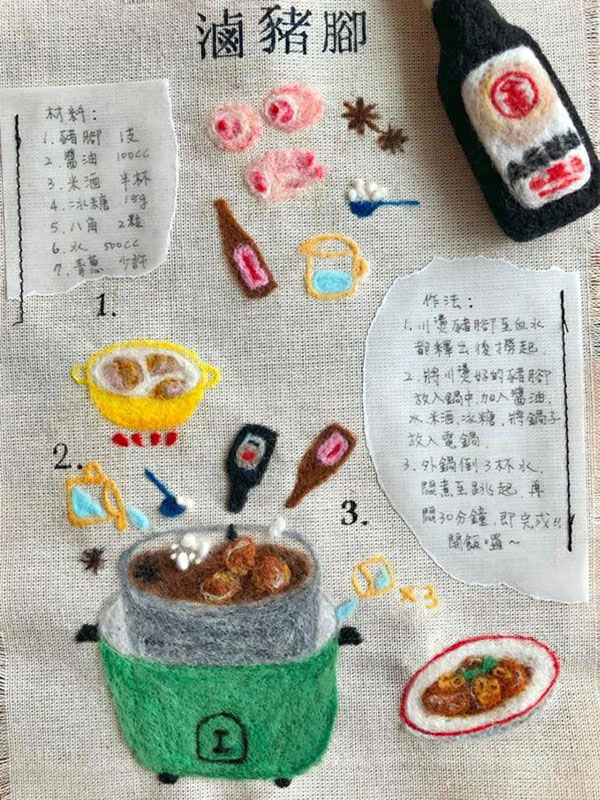 滷豬腳
材料：
1. 豬腳 1支
2. 醬油 100cc
3. 米酒 半杯
4. 冰糖 15g
5. 八角 2粒
6. 水 500cc
7. 青蔥 少許
1.
作法：
1. 川燙豬腳至血水
都釋出後撈起
2. 將川燙好的豬腳
放入鍋中,加入醬油,
水,米酒,冰糖,將鍋子
放入電鍋
3. 外鍋倒3杯水,
悶煮至跳起 再
悶30分鐘,即完成!!
開飯囉~
2.
3.
x3